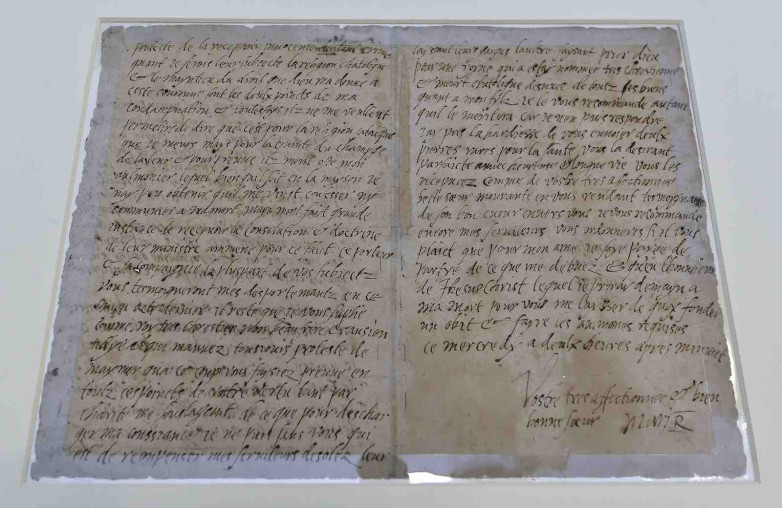 proteste de la recepvoir innocente crime
quant je serois leur subjecte la religion chatolique
& le mayntien du droit que dieu ma donne a
ceste couronne sont les deulx poincts de ma
condampnation & toutesfoys ilz ne me veulent
permettre de dire que cest pour la religion catolique
que je meurs mays pour la crainte du champge
de la leur & pour preuve ilz mont oste mon
aulmonier lequel bien quil soit en la mayson je
nay peu obtenir quil me vinst confesser ny
communier a ma mort mays mont faict grande
instance de recepvoir la consolation & doctrine
de leur ministre ammene pour ce faict ce porteur
& sa compaignie la pluspart de vos subjectz
vous tesmoigneront mes desportemantz en ce
mien acte dernier il reste que je vous suplie
comme roy tres chrestien mon beau frere & ansien
allye & qui mavvez tousjours proteste de
maymer qua ce coup vous faysiez preuve en
toutz ces poincts de vostre vertu tant par
charite me soulageant de ce que pour deschar
ger ma conssiance je ne puis sans vous qui
est de recompenser mes serviteurs desolez leur
layssant leurs gaiges laultre faysant prier dieu
pour une royne qui a estay nommee tres chrestienne
& meurt chatolique desnuee de toutz ses biens
quant a mon filz je le vous recommande autant
quil le meritera car je nen puis respondre
Jay pris la hardiesse de vous envoier deulx
pierres rares pour la sante vous la desirant
parfaicte avvec heureuse & longue vie vous les
recepvrez comme de vostre tres affectionnee
belle soeur mourante en vous rendant tesmoygnasge
de son bon cueur envers vous je vous recommande
encore mes serviteurs vous ordonneres si il vous
plaict que pour mon ame je soye payee de
partye de ce que me debvez & quen lhonneur
de Jhesus Christ lequel je priray demayn a
ma mort pour vous me laysser de quoy fonder
un obit & fayre les aumosnes requises
ce mercredy a deulx heures apres minuit
Vostre tres affectionnee & bien
bonne soeur Mari R